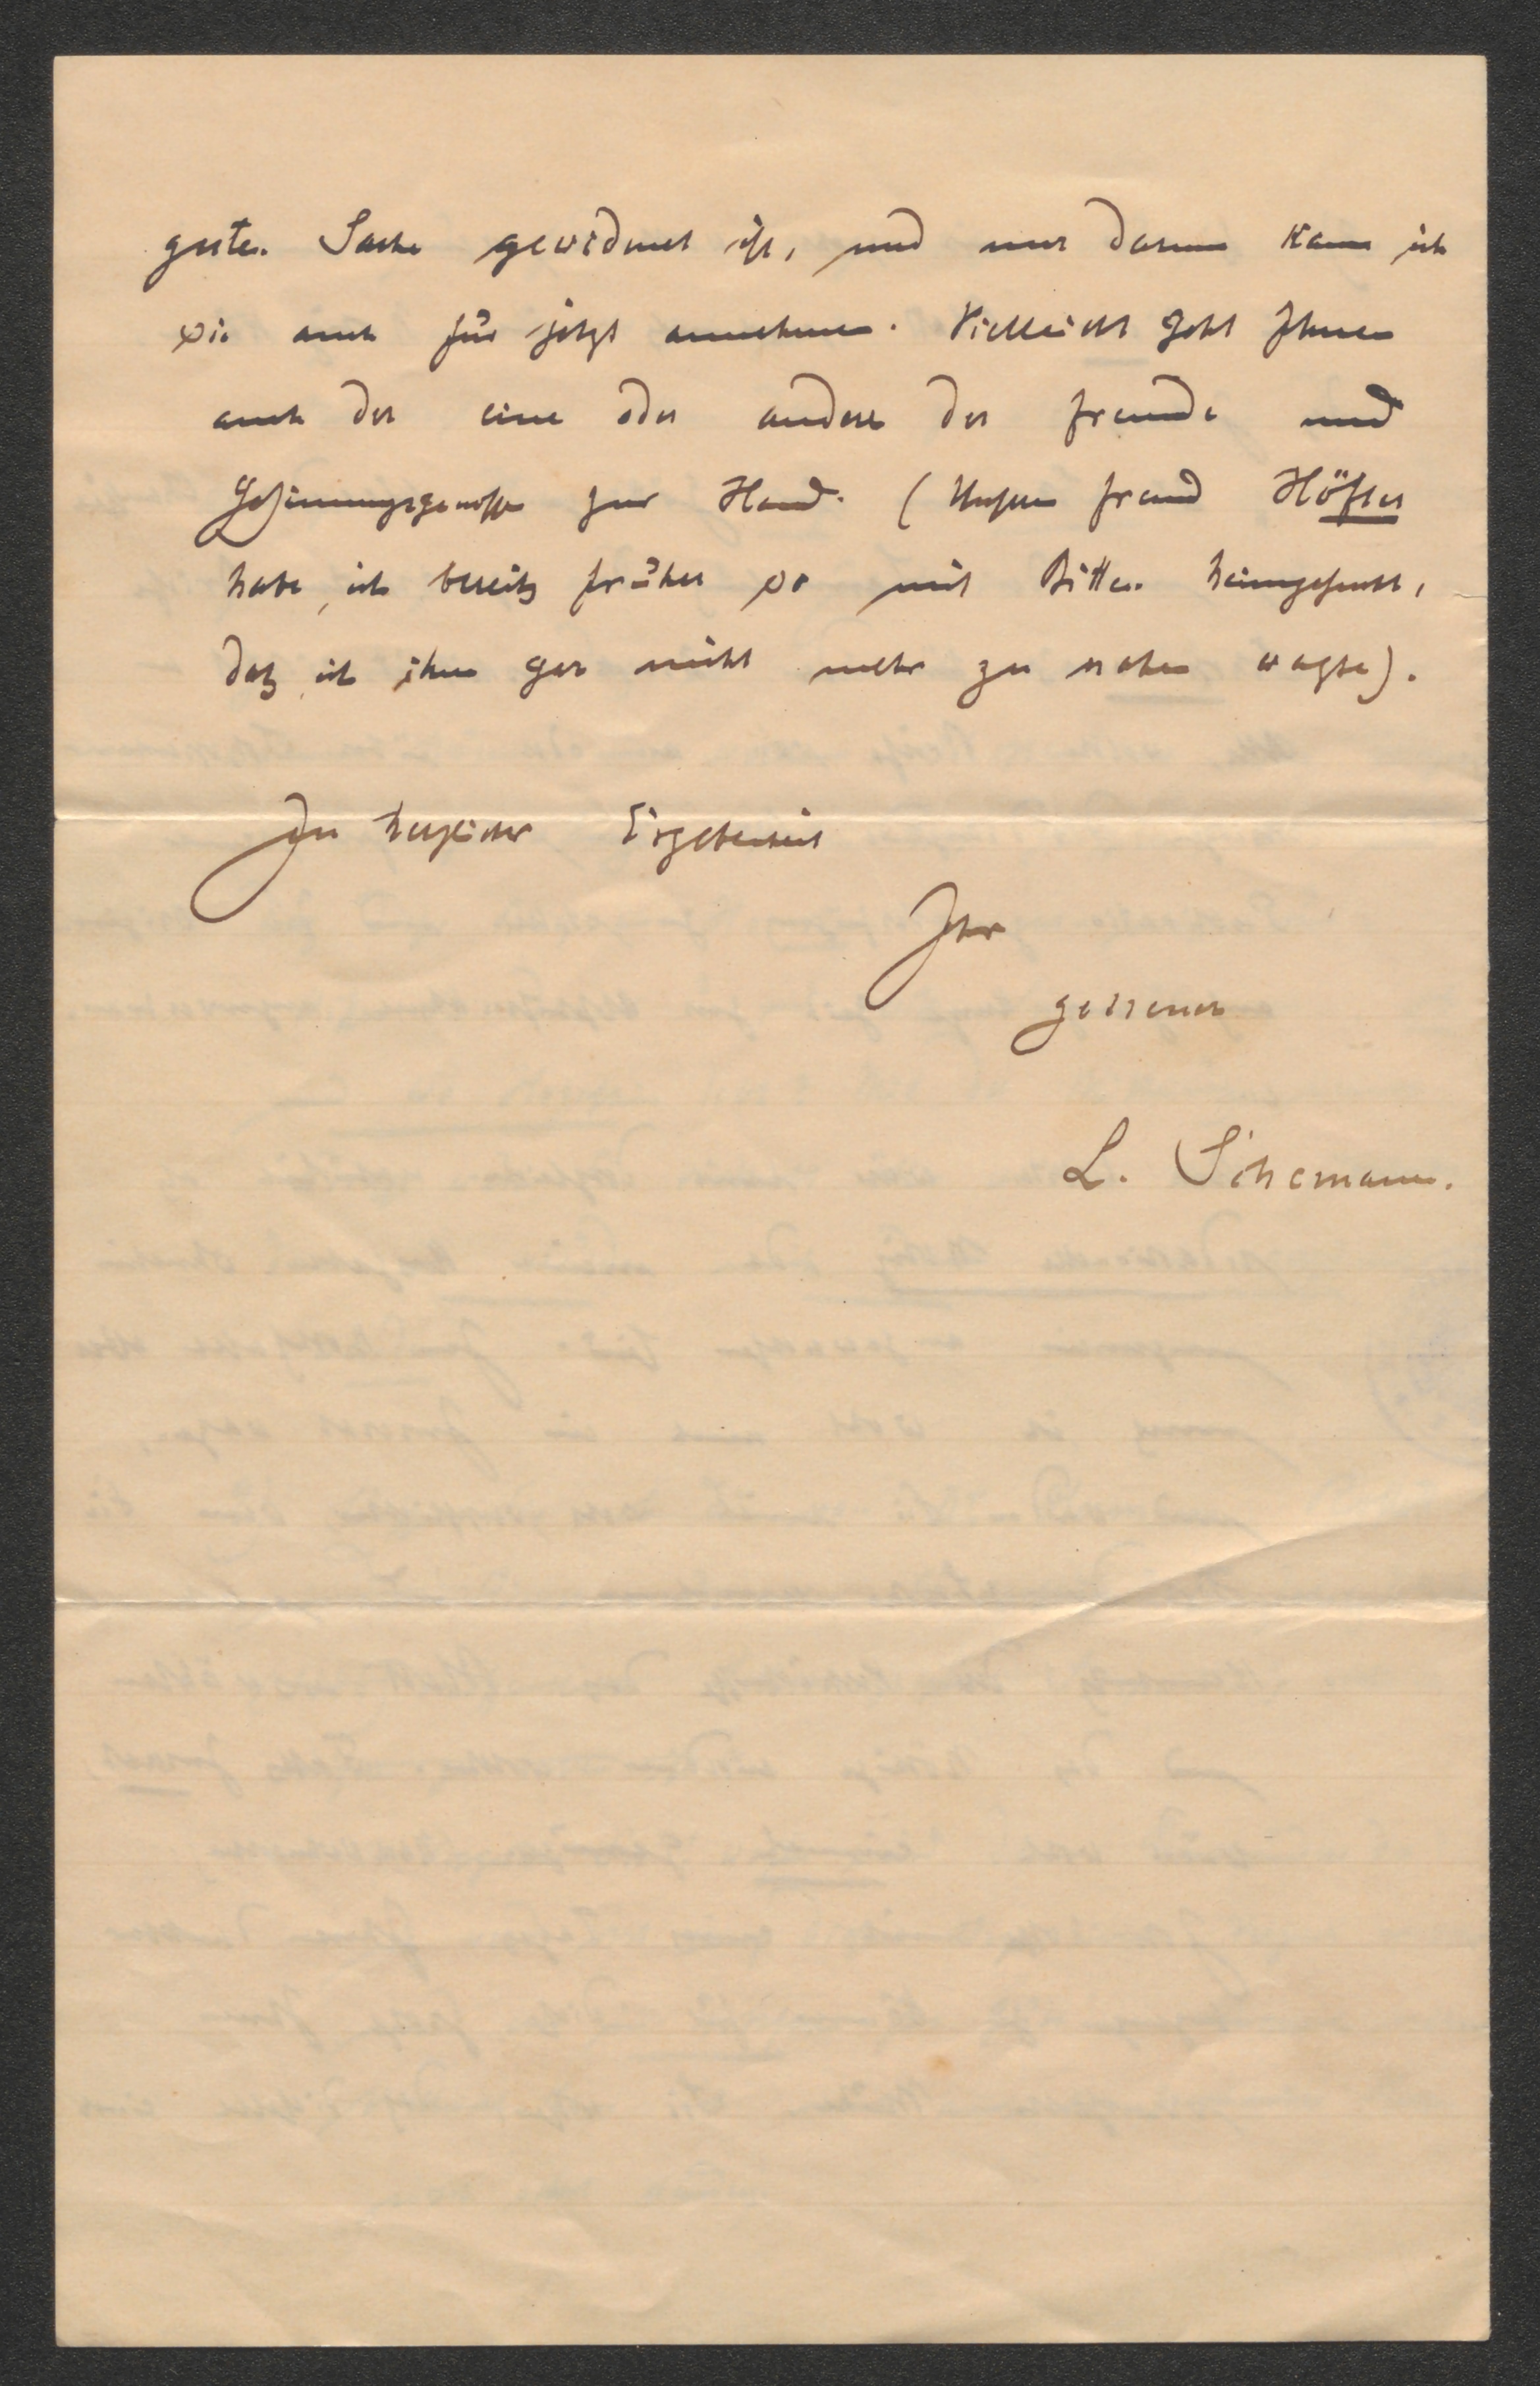 guten Sache gewidmet ist, und nur darum kann ich
sie auch für jetzt annehmen. Vielleicht geht Ihnen
auch der eine oder andere der Freunde und
Gesinnungsgenossen zur Hand. (Unsren Freund Höfler
habe ich bereits früher so mit Bitten heimgesucht,
daß ich ihm gar nicht mehr zu nahen wagte).
In herzlicher Ergebenheit
Ihr
getreuer
L. Schemann.